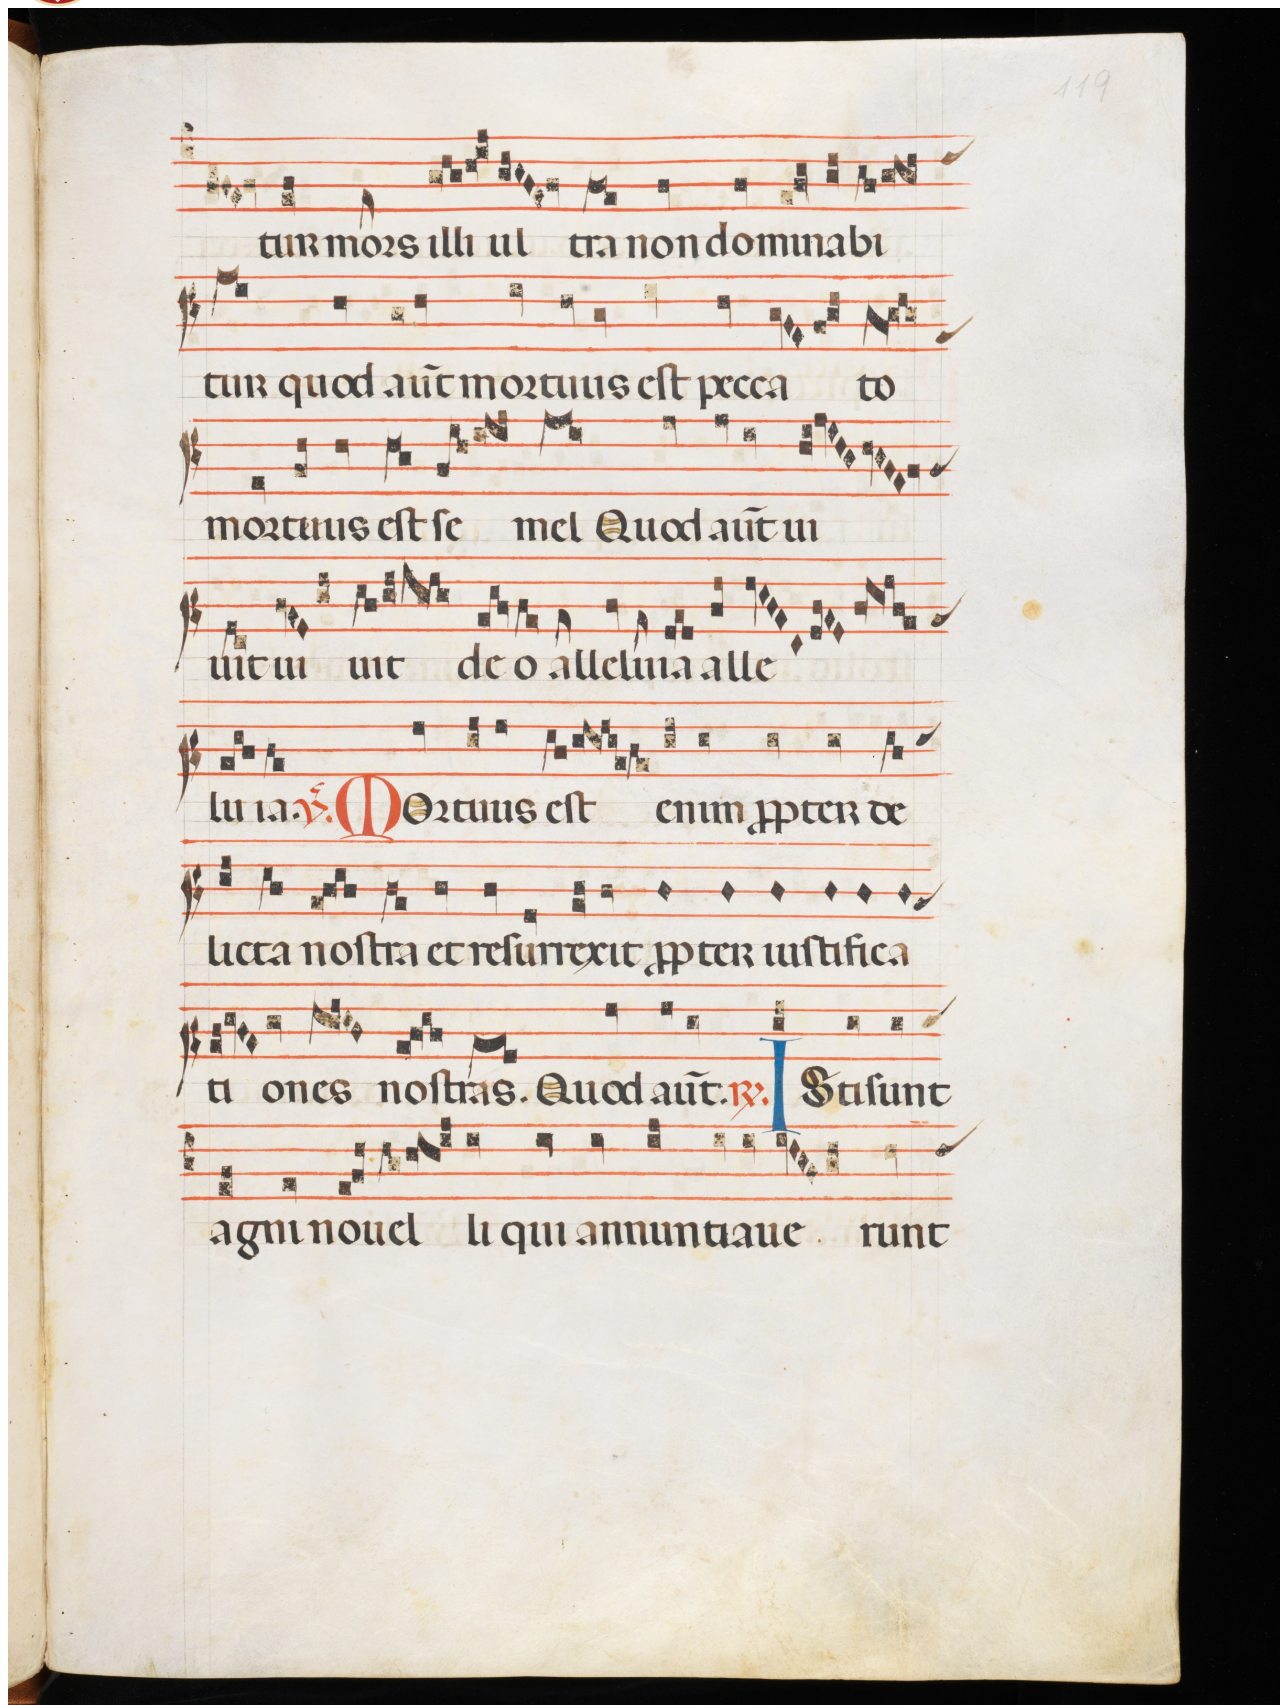 119
tur mors illi ul tra non dominabi
tur quod aut̄ mortuus est pecca to
mortuus est se mel Quod aut̄ ui
uit ui uit de o alleluia alle
lu ia. ℣. Mortuus est enim ꝓpter de
licta nostra et resurrexit ꝓpter iustifica
ti ones nostras. Quod aut̄. ℟. Isti sunt
agni nouel li qui annuntiaue runt